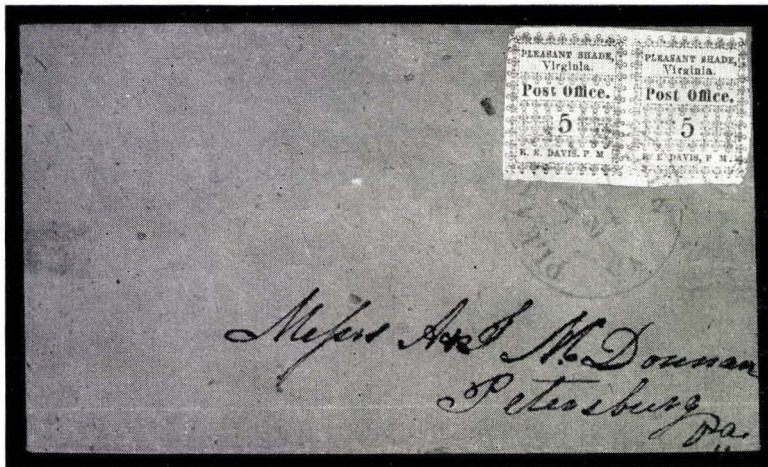 PLEASANT SHADE,
Virginia.
Post Office.
5
R. E. DAVIS, P M
PLEASANT SHADE,
Virginia.
Post Office.
5
R. E. DAVIS, P M.
PLEAS
VA
Messrs A & J McDonnan
Petersburg
Va.